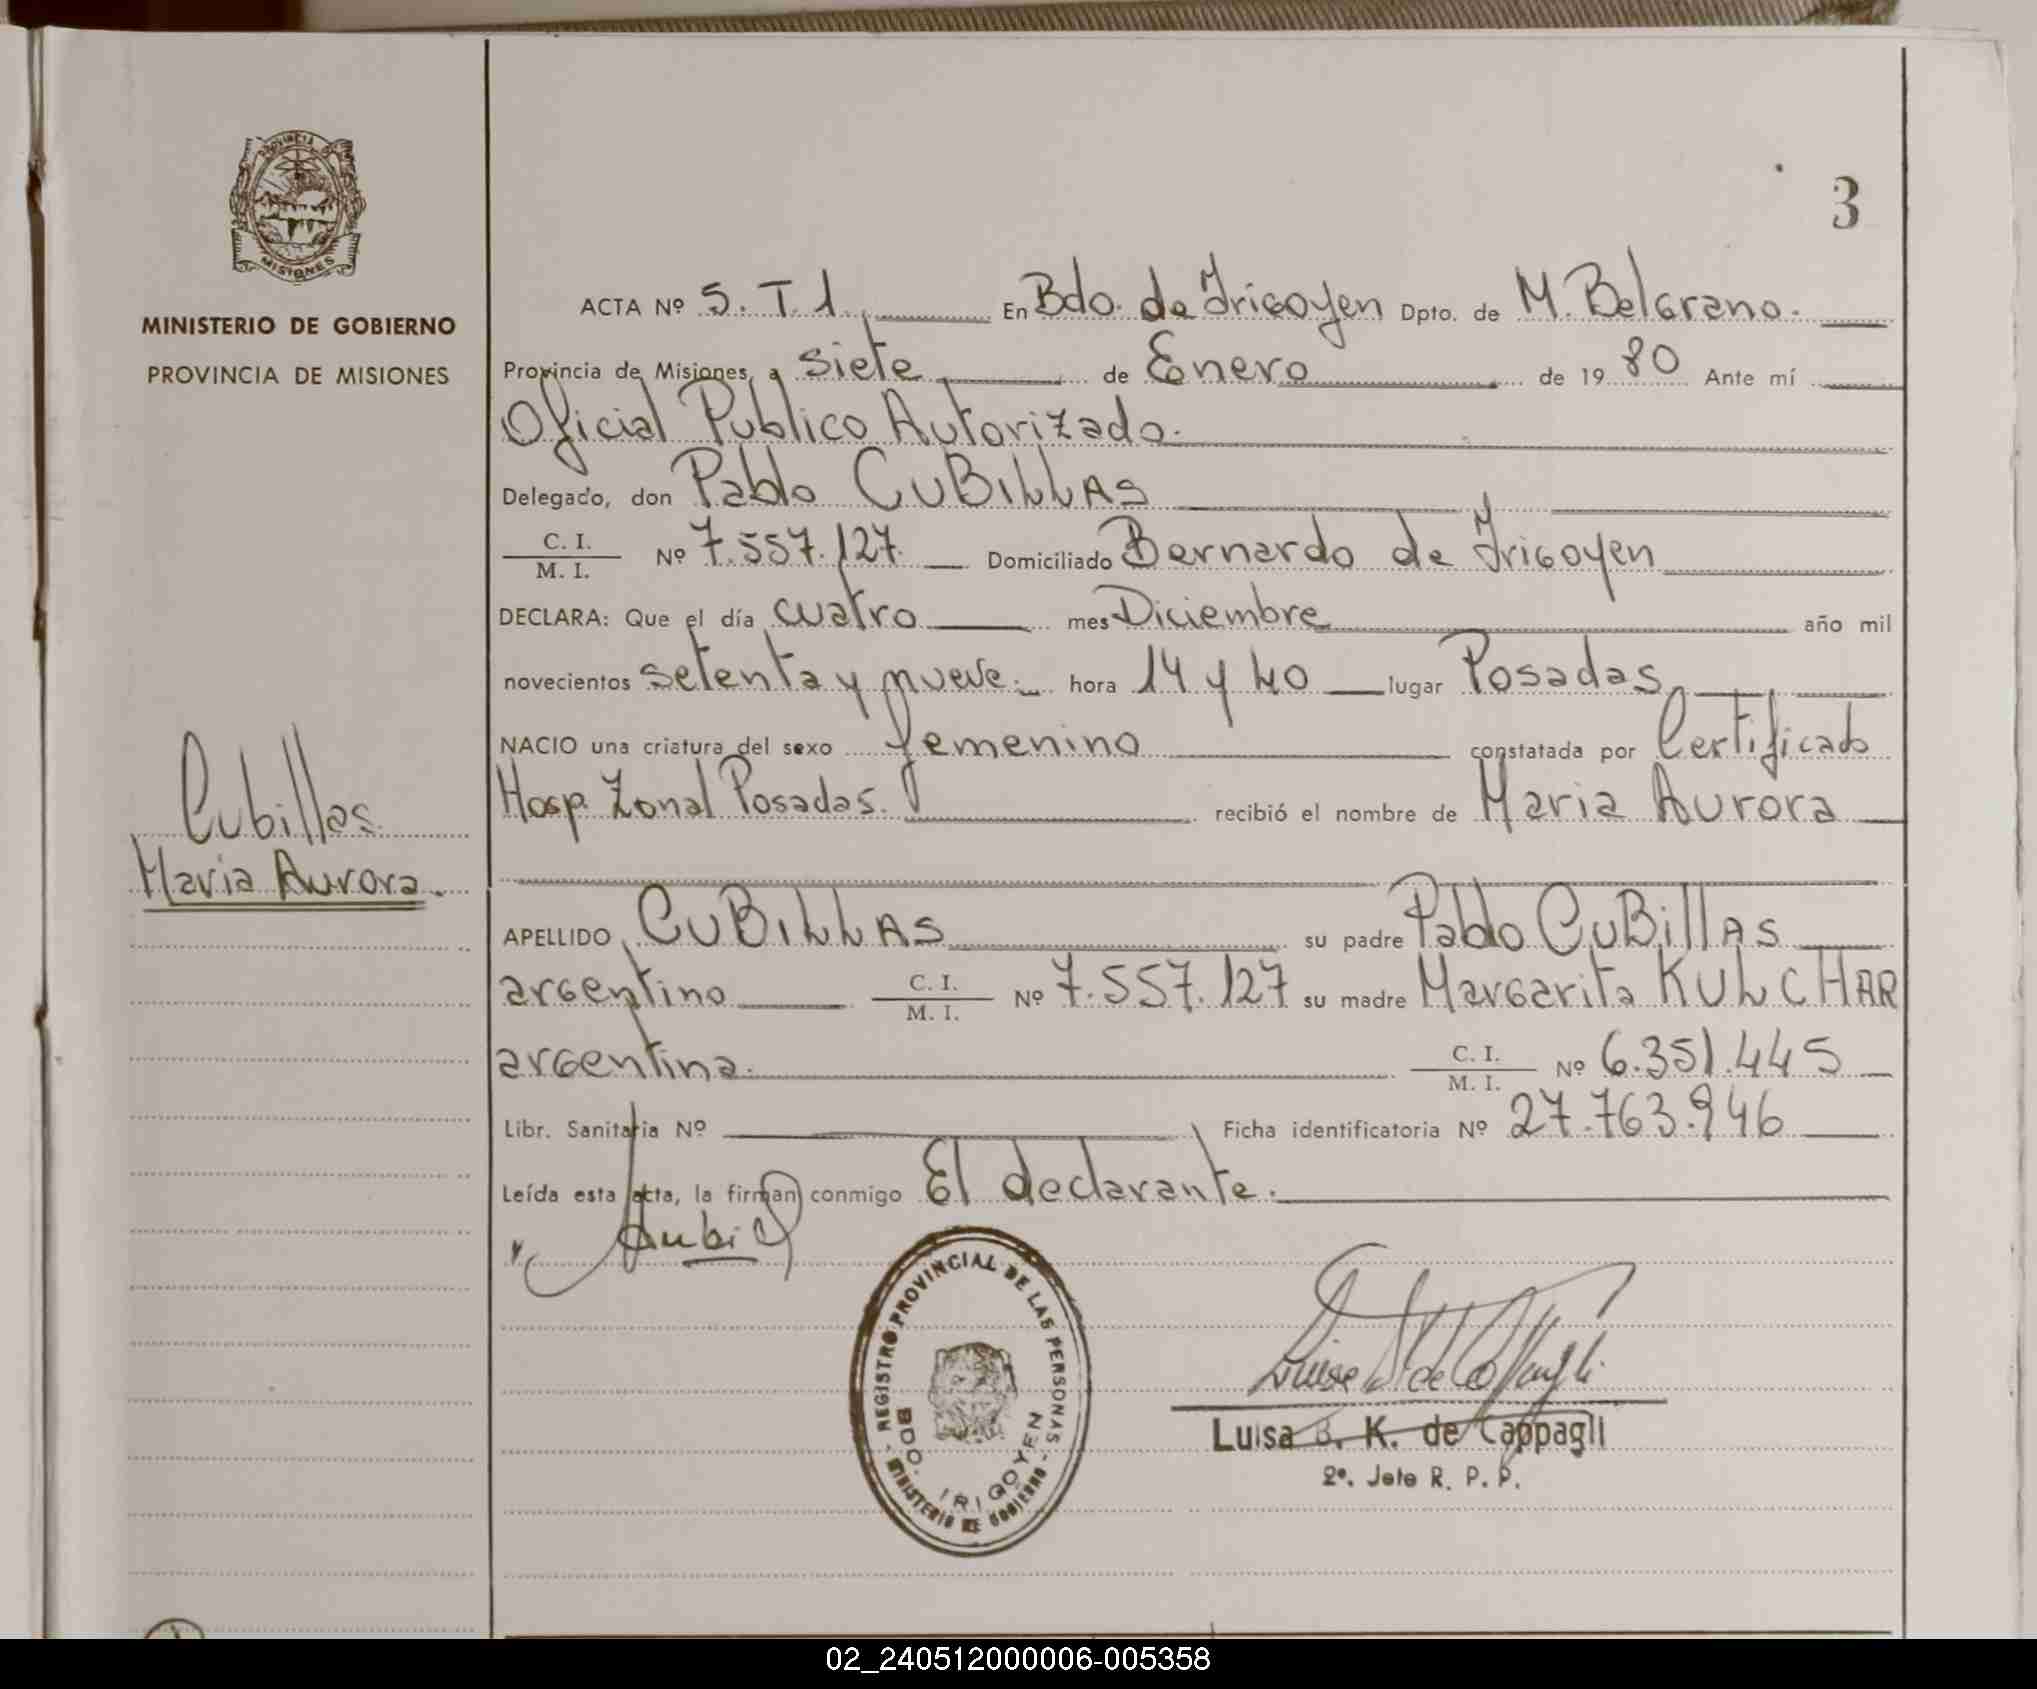 3
PROVINCIA DE
MISIONES
MINISTERIO DE GOBIERNO
PROVINCIA DE MISIONES
ACTA Nº 5. T. 1. En Bdo. de Irigoyen Dpto. de M. Belgrano.
Provincia de Misiones, a siete de Enero de 19 80 Ante mí
Oficial Publico Autorizado.
Delegado, don Pablo CUBILLAS
C. I.
M. I. Nº 7.557.127. Domiciliado Bernardo de Irigoyen
DECLARA: Que el día cuatro mes Diciembre año mil
novecientos setenta y nueve. hora 14 y 40 lugar Posadas
NACIO una criatura del sexo femenino constatada por Certificado
Hosp. Zonal Posadas. recibió el nombre de Maria Aurora
Cubillas
Maria Aurora.
APELLIDO CUBILLAS su padre Pablo CUBillAS
argentino C. I.
M. I. Nº 7.557.127 su madre Margarita KULCHAR
argentina. C. I.
M. I. Nº 6.351.445
Libr. Sanitaria Nº Ficha identificatoria Nº 27.763.946
Leída esta acta, la firman conmigo El declarante.
REGISTRO PROVINCIAL DE LAS PERSONAS
BDO. IRIGOYEN
- MINISTERIO DE GOBIERNO -
Luisa B. K. de Cappagli
2º. Jefe R. P. P.
02_240512000006-005358